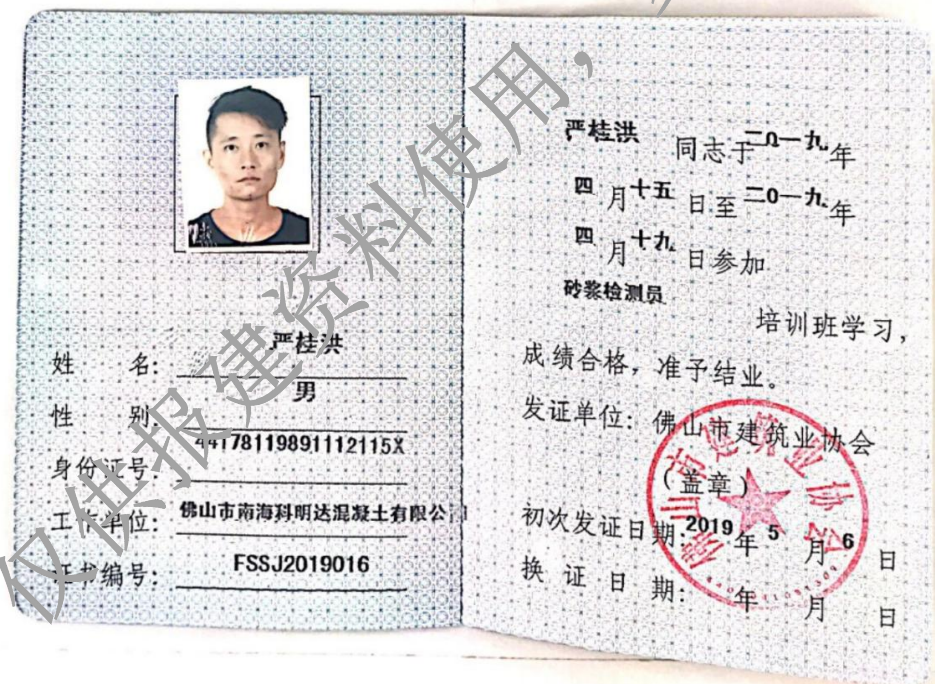 姓 名: 严桂洪
性 别: 男
身份证号: 44178119891112115X
工作单位: 佛山市南海科明达混凝土有限公司
证书编号: FSSJ2019016
严桂洪 同志于二0一九年
四月十五日至二0一九年
四月十九日参加
砂浆检测员
培训班学习,
成绩合格,准予结业。
发证单位:佛山市建筑业协会
(盖章)
初次发证日期:2019年5月6日
换证日期: 年 月 日
佛山市建筑业协会
仅供报建资料使用,